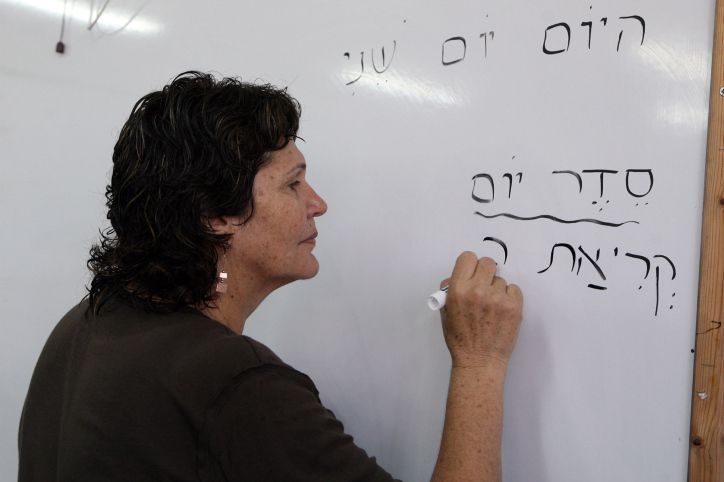 היוֹם יוֹם שֵׁנִי
סֵדֶר יוֹם
קְרִיאַת